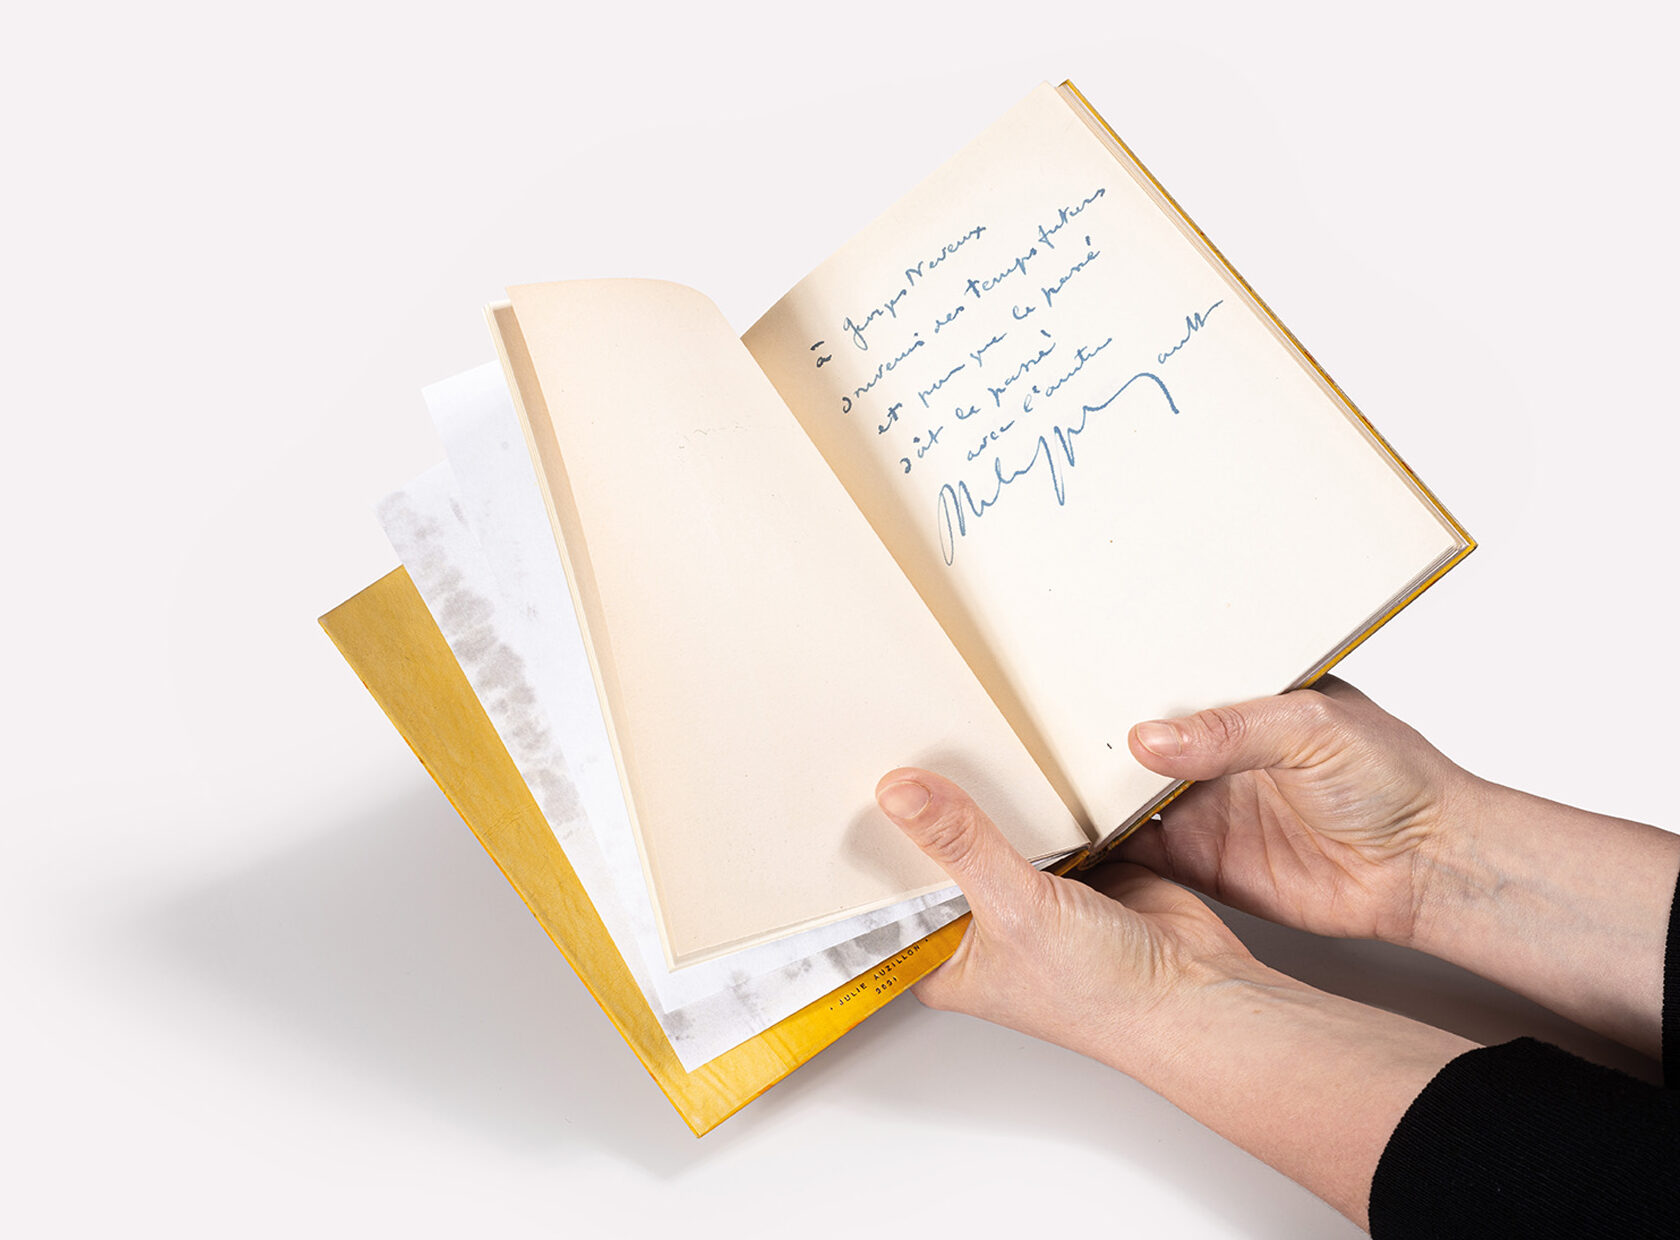 à Georges Neveux
souvenir des temps futurs
et pour que le passé
soit le passé
avec l'amitié
. JULIE AUZILLON .
2021